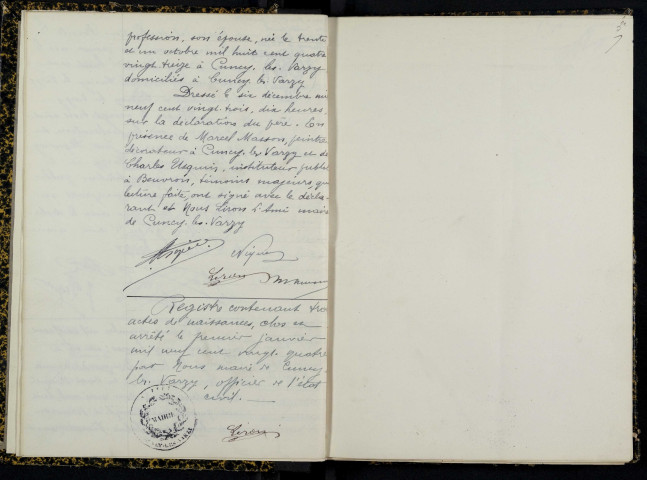 profession, son épouse, née le trente
et un octobre mil huit cent quatre
vingt treize à Cuncy-les-Varzy
domiciliés à Cuncy les Varzy
Dressé le six décembre mil
neuf cent vingt-trois, dix heures,
sur la déclaration du père. En
présence de Marcel Masson, peintre
décorateur à Cuncy-les-Varzy et de
Charles instituteur public
à Beuvron, témoins majeurs, qui
lecture faite, ont signé avec le décla-
rant et Nous Liron L'Ami maire
de Cuncy-les-Varzy
Liron Masson
Registre contenant trois
actes de naissances, clos et
arrêté le premier janvier
mil neuf cent vingt-quatre
par Nous maire de Cuncy-
les-Varzy, officier de l'état
civil.
MAIRIE
Liron